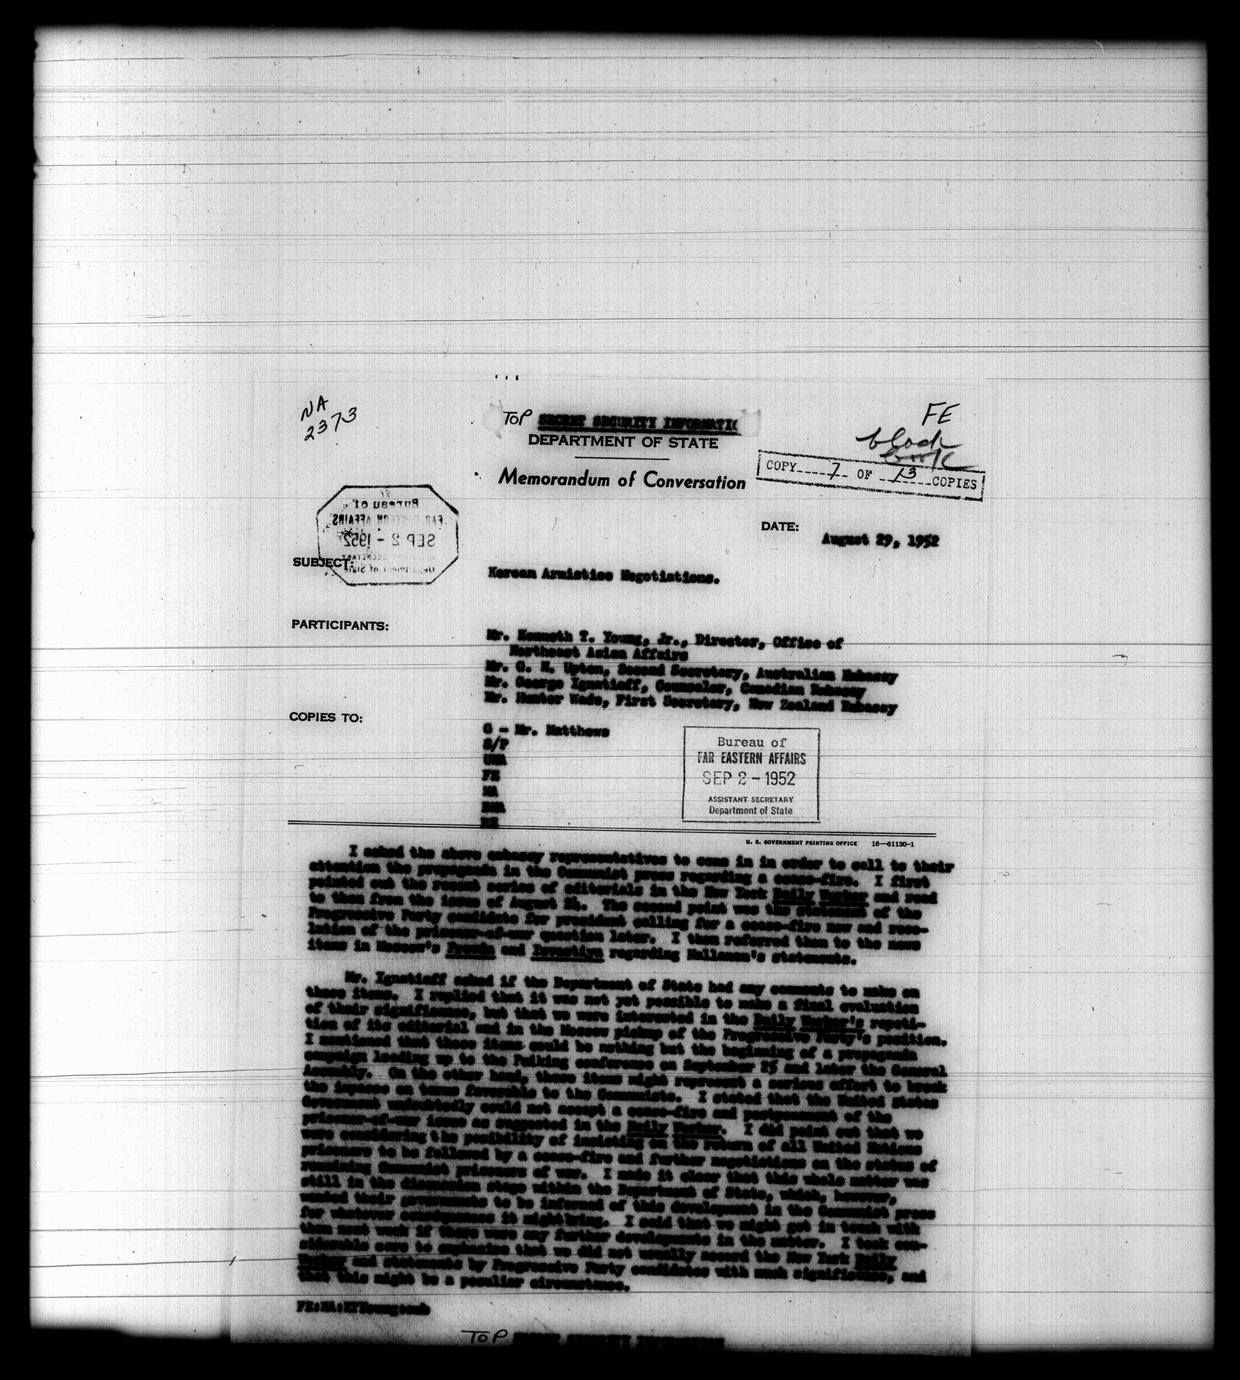 NA
2373
TOP SECRET SECURITY INFORMATIO
DEPARTMENT OF STATE
Memorandum of Conversation
FE
black
book
COPY 7 OF 13 COPIES
Bureau of
FAR EASTERN AFFAIRS
SEP 2 - 1952
Department of State
DATE:
August 29, 1952
SUBJECT:
Korean Armistice Negotiations.
PARTICIPANTS:
Mr. Kenneth T. Young, Jr., Director, Office of
Northeast Asian Affairs
Mr. G. H. Upton, Second Secretary, Australian Embassy
Mr. George Ignatieff, Counselor, Canadian Embassy
Mr. Hunter Wade, First Secretary, New Zealand Embassy
COPIES TO:
G - Mr. Matthews
S/P
UNA
FE
NA
BNA
Bureau of
FAR EASTERN AFFAIRS
SEP 2 - 1952
ASSISTANT SECRETARY
Department of State
U. S. GOVERNMENT PRINTING OFFICE 16—61120-1
I asked the above embassy representatives to come in in order to call to their
attention the propaganda in the Communist press regarding a cease-fire. I first
pointed out the recent series of editorials in the New York Daily Worker and read
to them from the issue of August 24. The second point was the statement of the
Progressive Party candidate for president calling for a cease-fire now and reso-
lution of the prisoner-of-war question later. I then referred them to the news
items in Moscow's Pravda and Izvestiya regarding Hallanan's statements.
Mr. Ignatieff asked if the Department of State had any comments to make on
these items. I replied that it was not yet possible to make a final evaluation
of their significance, but that we were interested in the Daily Worker's repeti-
tion of its editorial and in the Moscow pickup of the Progressive Party's position.
I mentioned that these items could be nothing but the beginning of a propaganda
campaign leading up to the Peiking conference on September 25 and later the General
Assembly. On the other hand, these items might represent a serious effort to break
the impasse on terms favorable to the Communists. I stated that the United States
Government undoubtedly could not accept a cease-fire and postponement of the
prisoner-of-war issue as suggested in the Daily Worker. I did point out that we
were considering the posibility of insisting on the return of all United Nations
prisoners to be followed by a cease-fire and further negotiations on the status of
remaining Communist prisoners of war. I made it clear that this whole matter was
still in the discussion stage within the Department of State, which, however,
wanted their governments to be informed of this development in the Communist press
for whatever consequences it might bring. I said that we might get in touch with
them next week if there were any further developments in the matter. I took con-
siderable care to emphasize that we did not usually accord the New York Daily
Worker and statements by Progressive Party candidates with much significance, and
that this might be a peculiar circumstance.
FE:NA:KTYoung:smb
TOP SECRET SECURITY INFORMATION